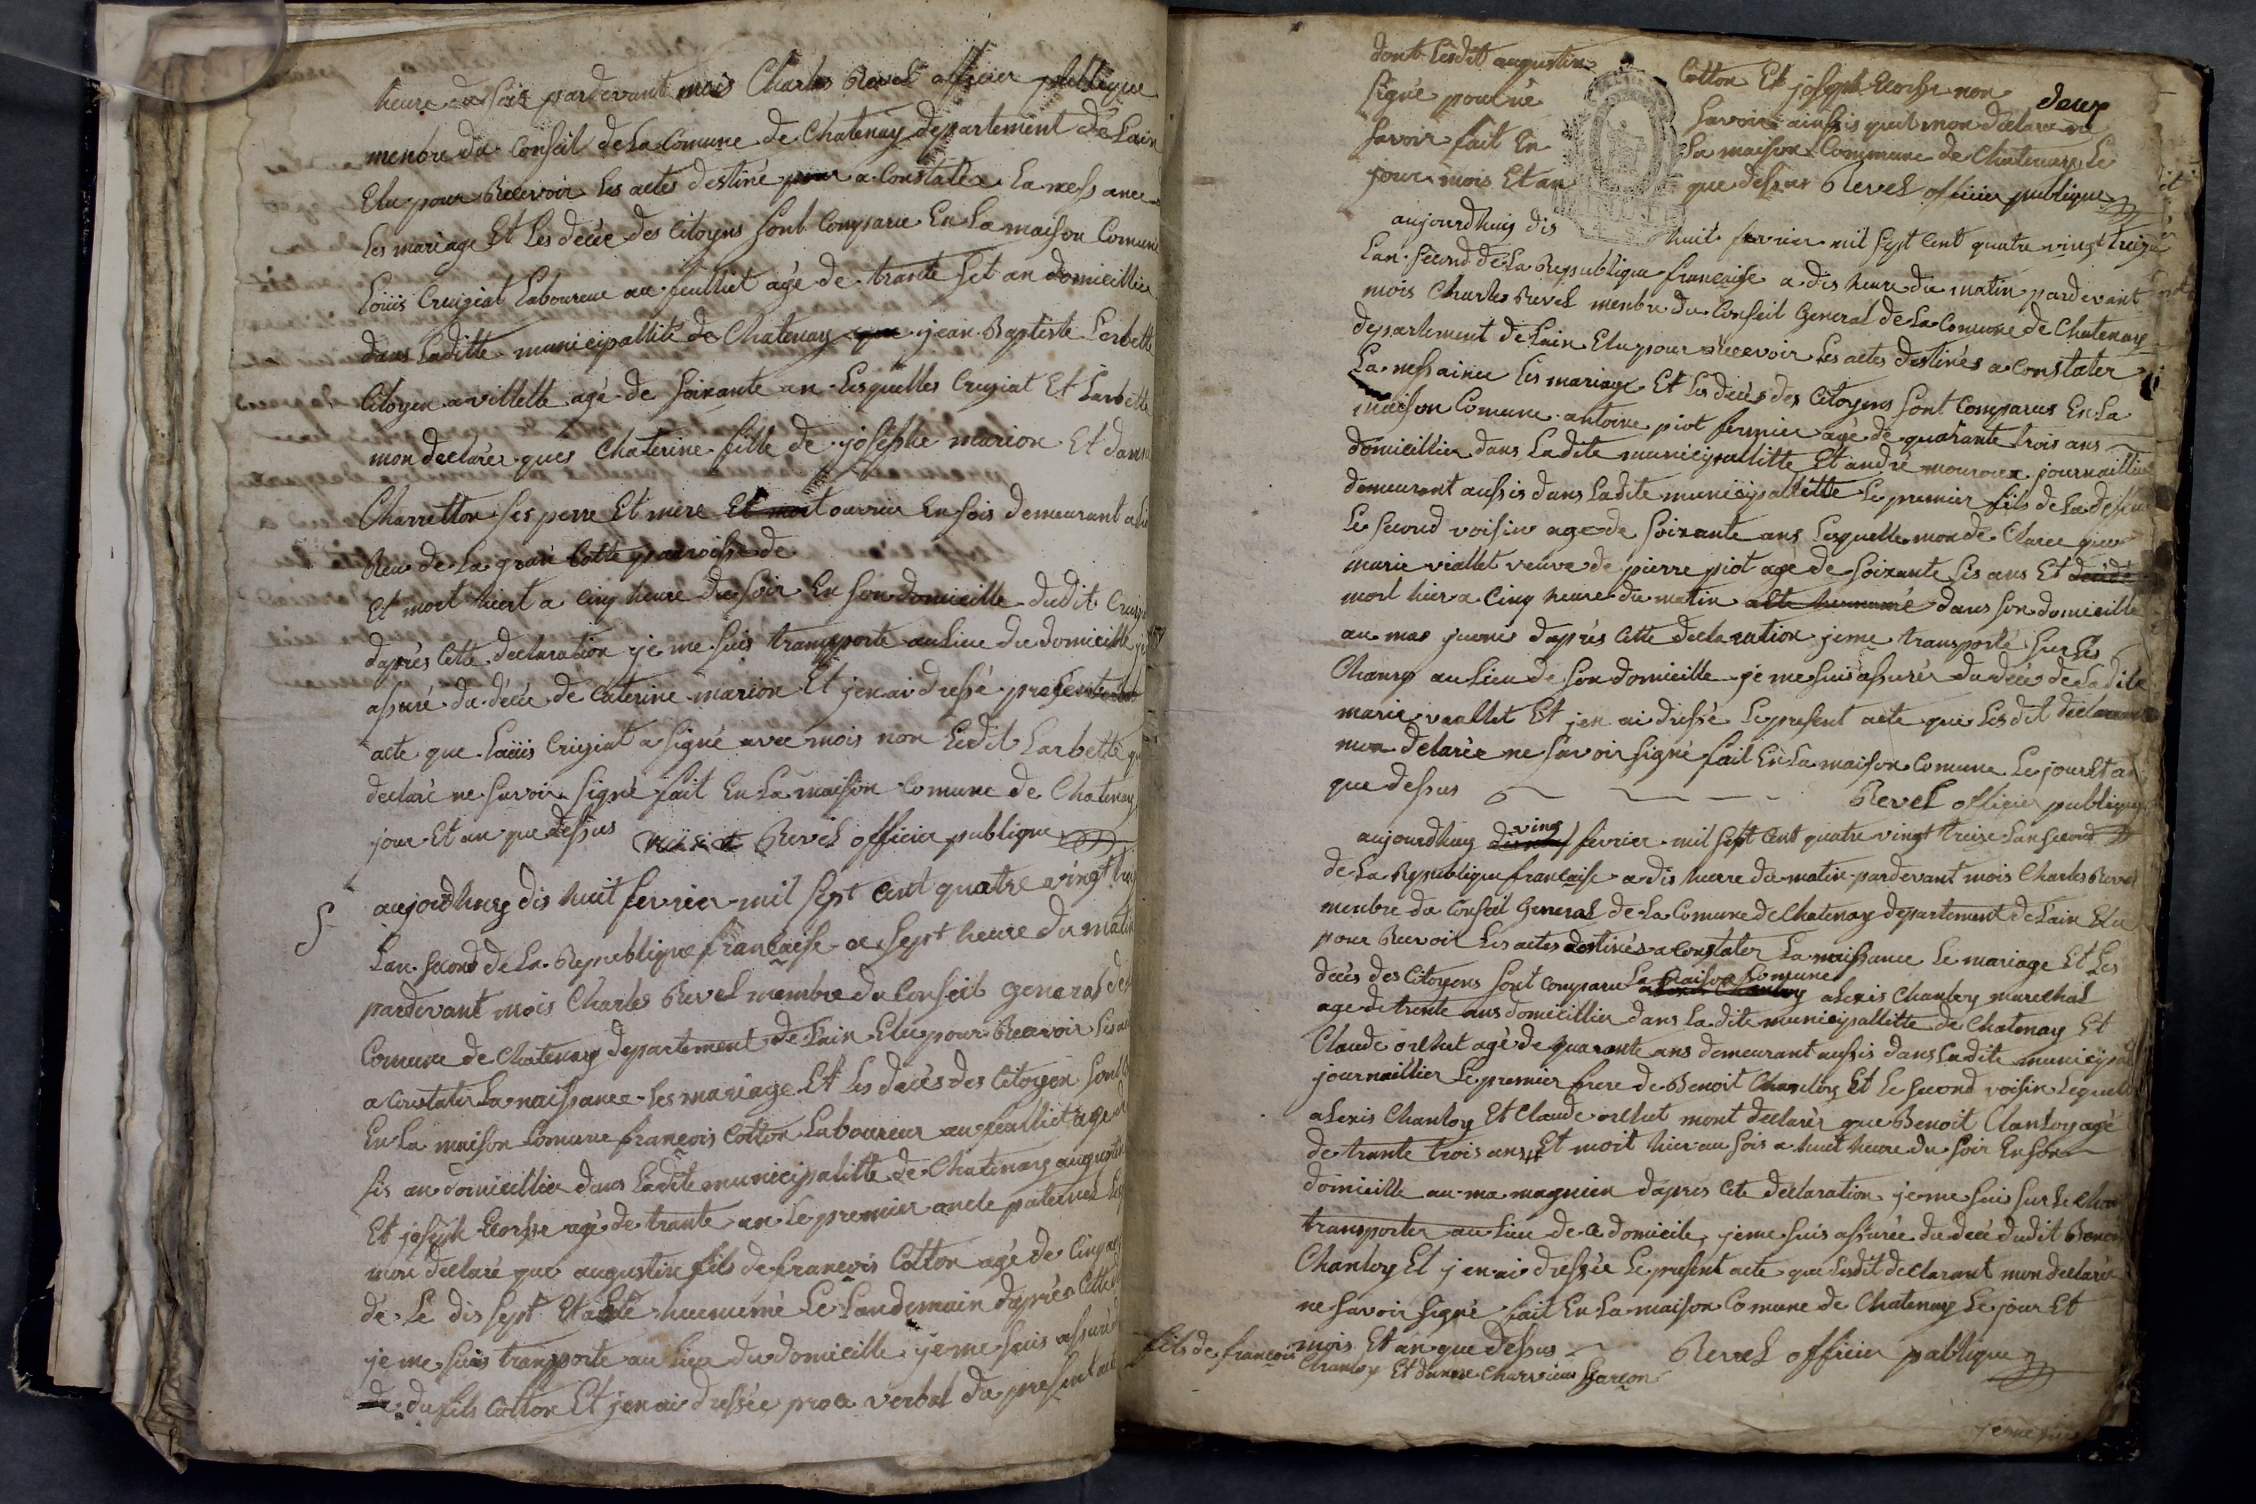 heure du soir pardevant mois Charles Revel officier publique
menbre du Conseil de La Comune de Chatenay departement de Lain
Elu pour Recevoir Les actes destiné a Constater La nessance
Les mariage Et Les decée des Citoyens sont Comparu En La maison Comune
Loüis Crugiat Laboureur au feulliet agé de trante set an domicillier
dans Laditte municipallité de Chatenay jean Baptiste Lerbette
Citoyen a villette agé de soixante an Lesquelles Crugiat Et Larbette
mon declarer ques Chaterine fille de josephe marion Et
Charretton ses perre Et mere ouvrier En sois demeurant
Rue de La gran Cotte parroisse de
Et mort hiert a Cinq heure du soir En son domicille dudit
dapres Cette declaration je me suis transporte au Lieu du domicille
assuré du décée de Caterine marion Et jen ai dressé presente
acte que Loüis Crugiat a signé avec mois non Ledit Larbette
declaré ne savoir signé fait En La maison Comune de Chatenay
jour Et an que dessus Revel officier publique
aujordhuy dis huit fevrier mil sept cent quatre vingt
Lan second de La Republique francaise a sept heure du matin
pardevant mois Charles Revel membre du Conseil general de
Comune de Chatenay departement de Lain Elu pour Recevoir
a Constater La naissance Les mariage Et Les decès des Citoyen sont
En La maison Comune francois Cotton Laboureur au feulliet agé
sis an domicillier dans Ladite municipalitte de Chatenay augustin
Et joseph Ecorse agé de trante an Le premier oncle paternel
mon declaré que augustin fils de francois Cotton agé de Cinq
dé Le dis sept Et a Eté huenemé Le Landemain dapres Cette
je me suis transporte au Lieu du domicille je me suis assuré
du fils Cotton Et jen ai dressée proce verbal du present
dont Lesdit augustin Cotton Et joseph Ecorse non
deux
signé pour ne savoir ainsis quil mon declare
savoir fait En La maison Commune de Chatenay Le
jour mois Et an que dessus Revel officier publique
aujourdhuy dis huit fevrier mil sept Cent quatre vingt treize
Lan second de La Republique francaise a dis heure du matin pardevant
mois Charles Revel menbre du Conseil General de La Comune de Chatenay
departement de Lain Elu pour Recevoir Les actes destinés a Constater
La nessaince Les mariage Et Les decès des Citoyens sont Comparus En La
maison Comune antoine piot fermier agé de quarante trois ans
domicillier dans Ladite municipallitte Et andré mouroux journaillier
demeurant aussis dans Ladite municipallitte Le premier fils de La
Le second voisin age de soixante ans Lesquelle mon de Claree que
marie viallet veuve de pierre piot agé de soixante sis ans Et
mort hier a Cinq heure du matin dans son domicille
au mas dapres Cette declaration jeme transporté sur Les
Chamy au Lieu de son domicille je me suis assurér du decé de Ladite
marie viallet Et jen ai dressé Le present acte que Lesdit
mon delarée ne savoir signé fait En La maison Comune Le jour Et an
que dessus Revel officier publique
aujourdhuy ving fevrier mil sept Cent quatre vingt treize Lan second
de La Republique francaise a dis heure du matin pardevant mois Charles Revel
menbre du Conseil General de La Comune de Chatenay departement de Lain Elu
pour Recevoir Les actes destinés a Constater La naissance Le mariage Et Les
decès des Citoyens sont Comparu La maison Comune alexis Chanloy marechal
age de trente ans domicillier dans La dite municipallitte de Chatenay Et
Claude agé de quarante ans demeurant aussis dans Ladite
journaillier Le premier frere de Benoit Chanloy Et Le second voisin
alexis Chanloy Et Claude mont declarér que Benoit Chanloy agé
de trante trois ans Et moit hier au sois a huit heure du soir En son
domicille au ma magnien dapres Cete declaration jeme sui sur Le
transporter au Lieu de Ce domicile, jeme suis assurée du decé dudit Benoit
Chanloy Et jen ai dressée Le present acte que Lesdit declarant mon declarér
ne savoir signé fait En La maison Comune de Chatenay Le jour Et
mois Et an que dessus Revel officier publique
fils de francois
Chanloy Et garcon